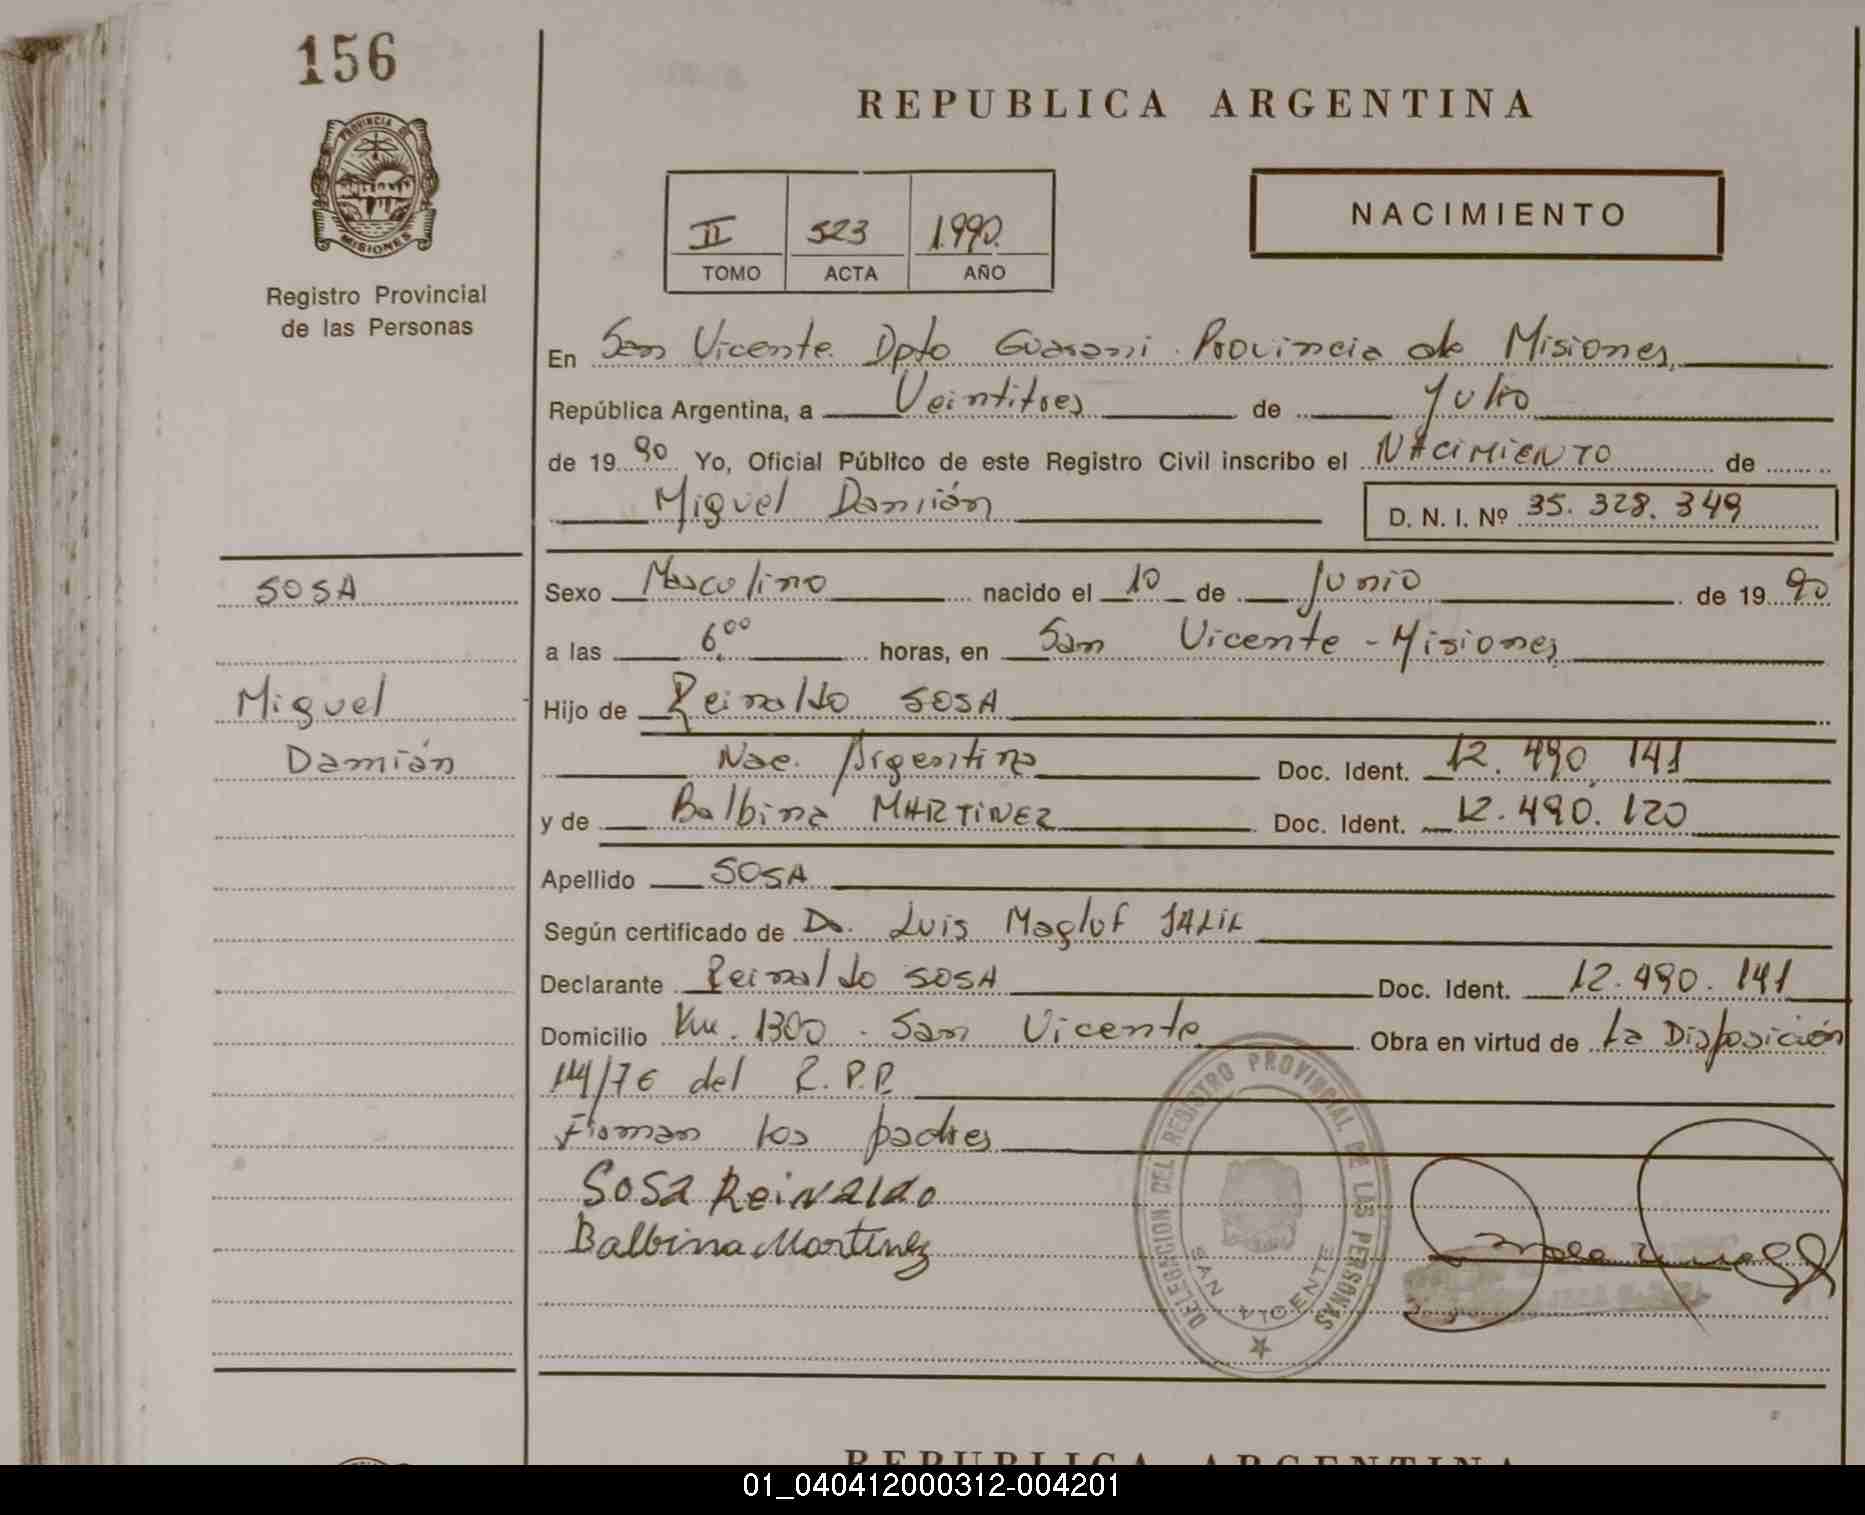 156
PROVINCIA DE
MISIONES
Registro Provincial
de las Personas
REPUBLICA ARGENTINA
II 523 1.990.
TOMO ACTA AÑO
NACIMIENTO
En San Vicente Dpto Guarani Provincia de Misiones,
República Argentina, a Veintitres de Julio
de 19 90 Yo, Oficial Público de este Registro Civil inscribo el NACIMIENTO de
Miguel Damián
D. N. I. Nº 35. 328. 349
SOSA
Miguel
Damián
Sexo Masculino nacido el 10 de Junio de 19 90
a las 6,00 horas, en San Vicente - Misiones
Hijo de Reinaldo SOSA
Nac. Argentina Doc. Ident. 12. 490. 141
y de Balbina MARTINEZ Doc. Ident. 12. 490. 120
Apellido SOSA
Según certificado de Dr. Luis Magluf JALIL
Declarante Reinaldo SOSA Doc. Ident. 12. 490. 141
Domicilio Km. 1300 - San Vicente Obra en virtud de La Disposición
114/76 del R. P. P.
Firman los padres
SOSA REINALDO
Balbina Martinez
DELEGACION DEL REGISTRO PROVINCIAL DE LAS PERSONAS
SAN VICENTE
REPUBLICA ARGENTINA
01_040412000312-004201